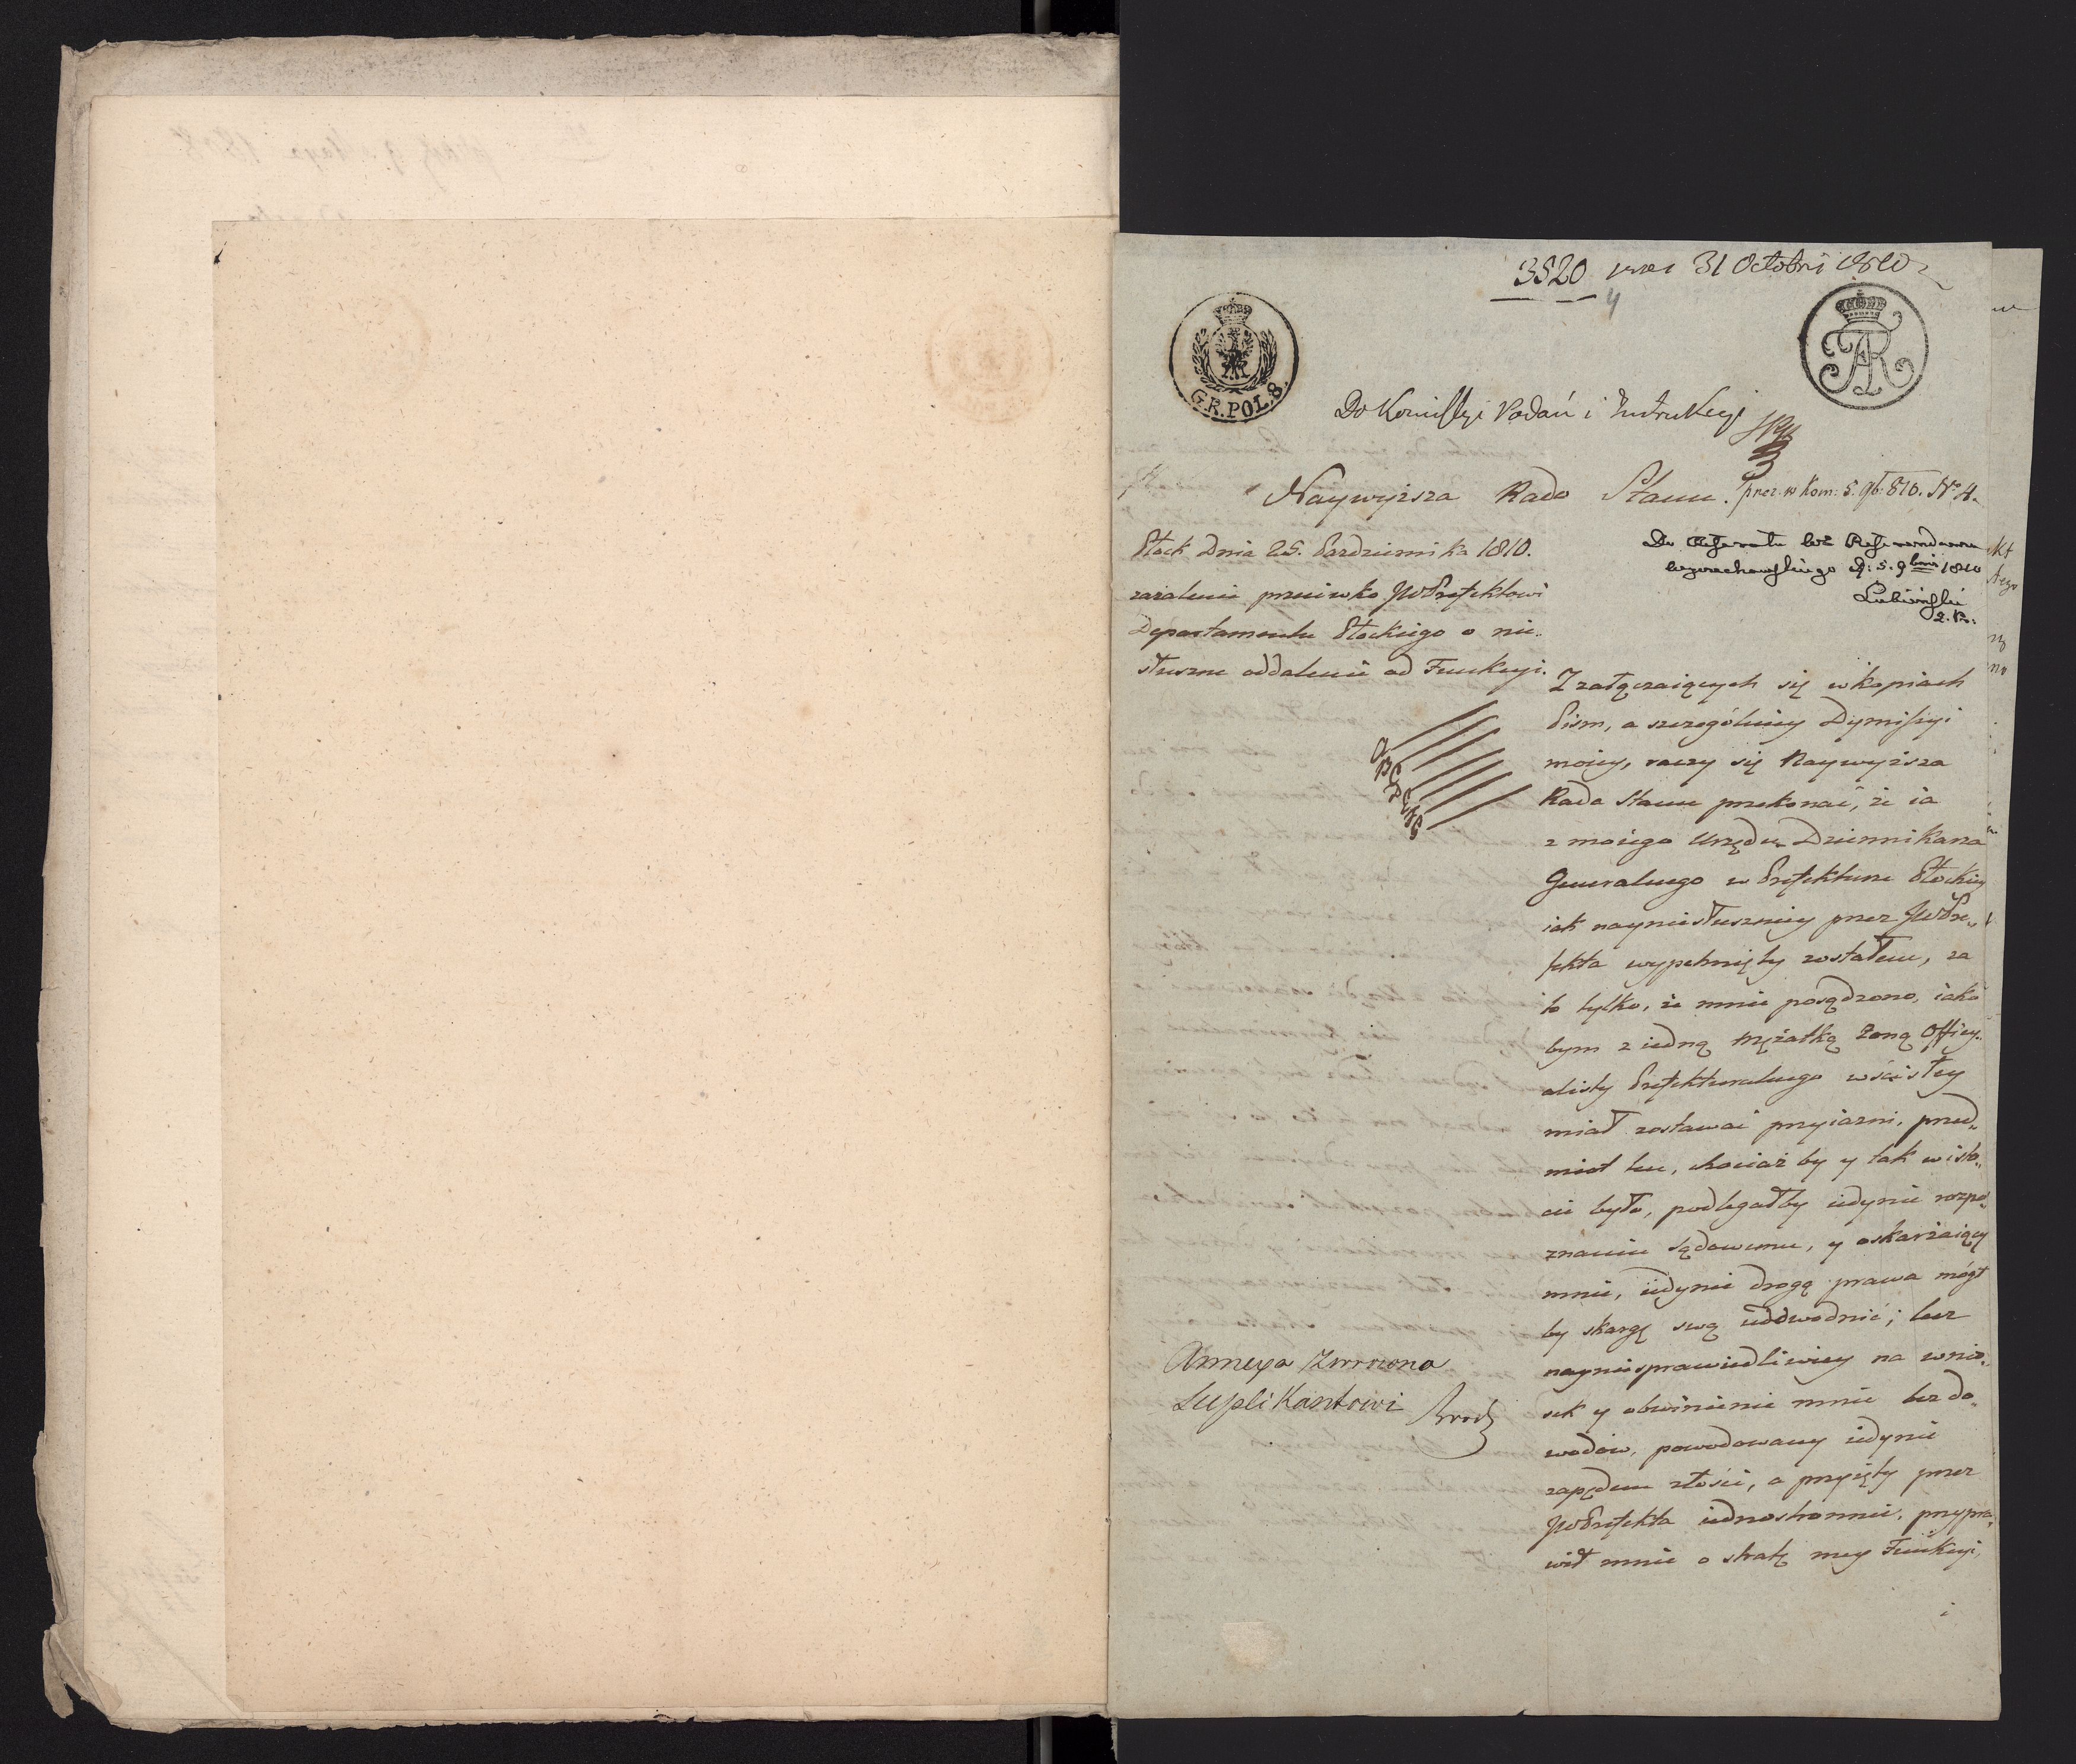 3520 31 Octobri 1810
4
G.R.POL.8.
Do Kommissyi Podań i Instrukcyi
Naywyższa Rado Stanu.
prez. w Kom: 5. 9b. 810. N° 4.
Płock Dnia 25. Pazdziernika 1810.
zażalenie przeciwko JWPrefektowi
Departamentu Płockiego o nie-
słuszne oddalenie od Funkcyi.
Do Referatu Referendarza
d: 5. 9bris 1810
Lubieński
A
B
C
D
E
F
G
Z załączaiących się w kopiach
Pism, a szczególniey Dymissyi
moiey, raczy się Naywyższa
Rada Stanu przekonać, że ia
z moiego Urzędu Dziennikarza
Generalnego w Prefekturze Płockiey
iak nayniesłuszniey przez JWPre-
fekta wypchnięty zostałem, za
to tylko, że mnie posądzono, iako
bym z iedną mężatką Zoną Officy-
alisty Prefekturalnego w ścisłey
miał zostawać przyiaźni, przed-
miot ten, chociażby y tak w isto-
cie było, podlegałby iedynie rozpo-
znaniu sądowemu, y oskarżaiący
mnie, iedynie drogą prawa mógł
by skargę swą udowodnić; lecz
nayniesprawiedliwiey na wnio-
sek y obwinienie mnie bez do-
wodów, powodowany iedynie
zapędem złości, a przyięty przez
JWPrefekta iednostronnie, przypra-
wił mnie o stratę mey Funkcyi,
i
Annexa Zwrócona
Suplikantowi